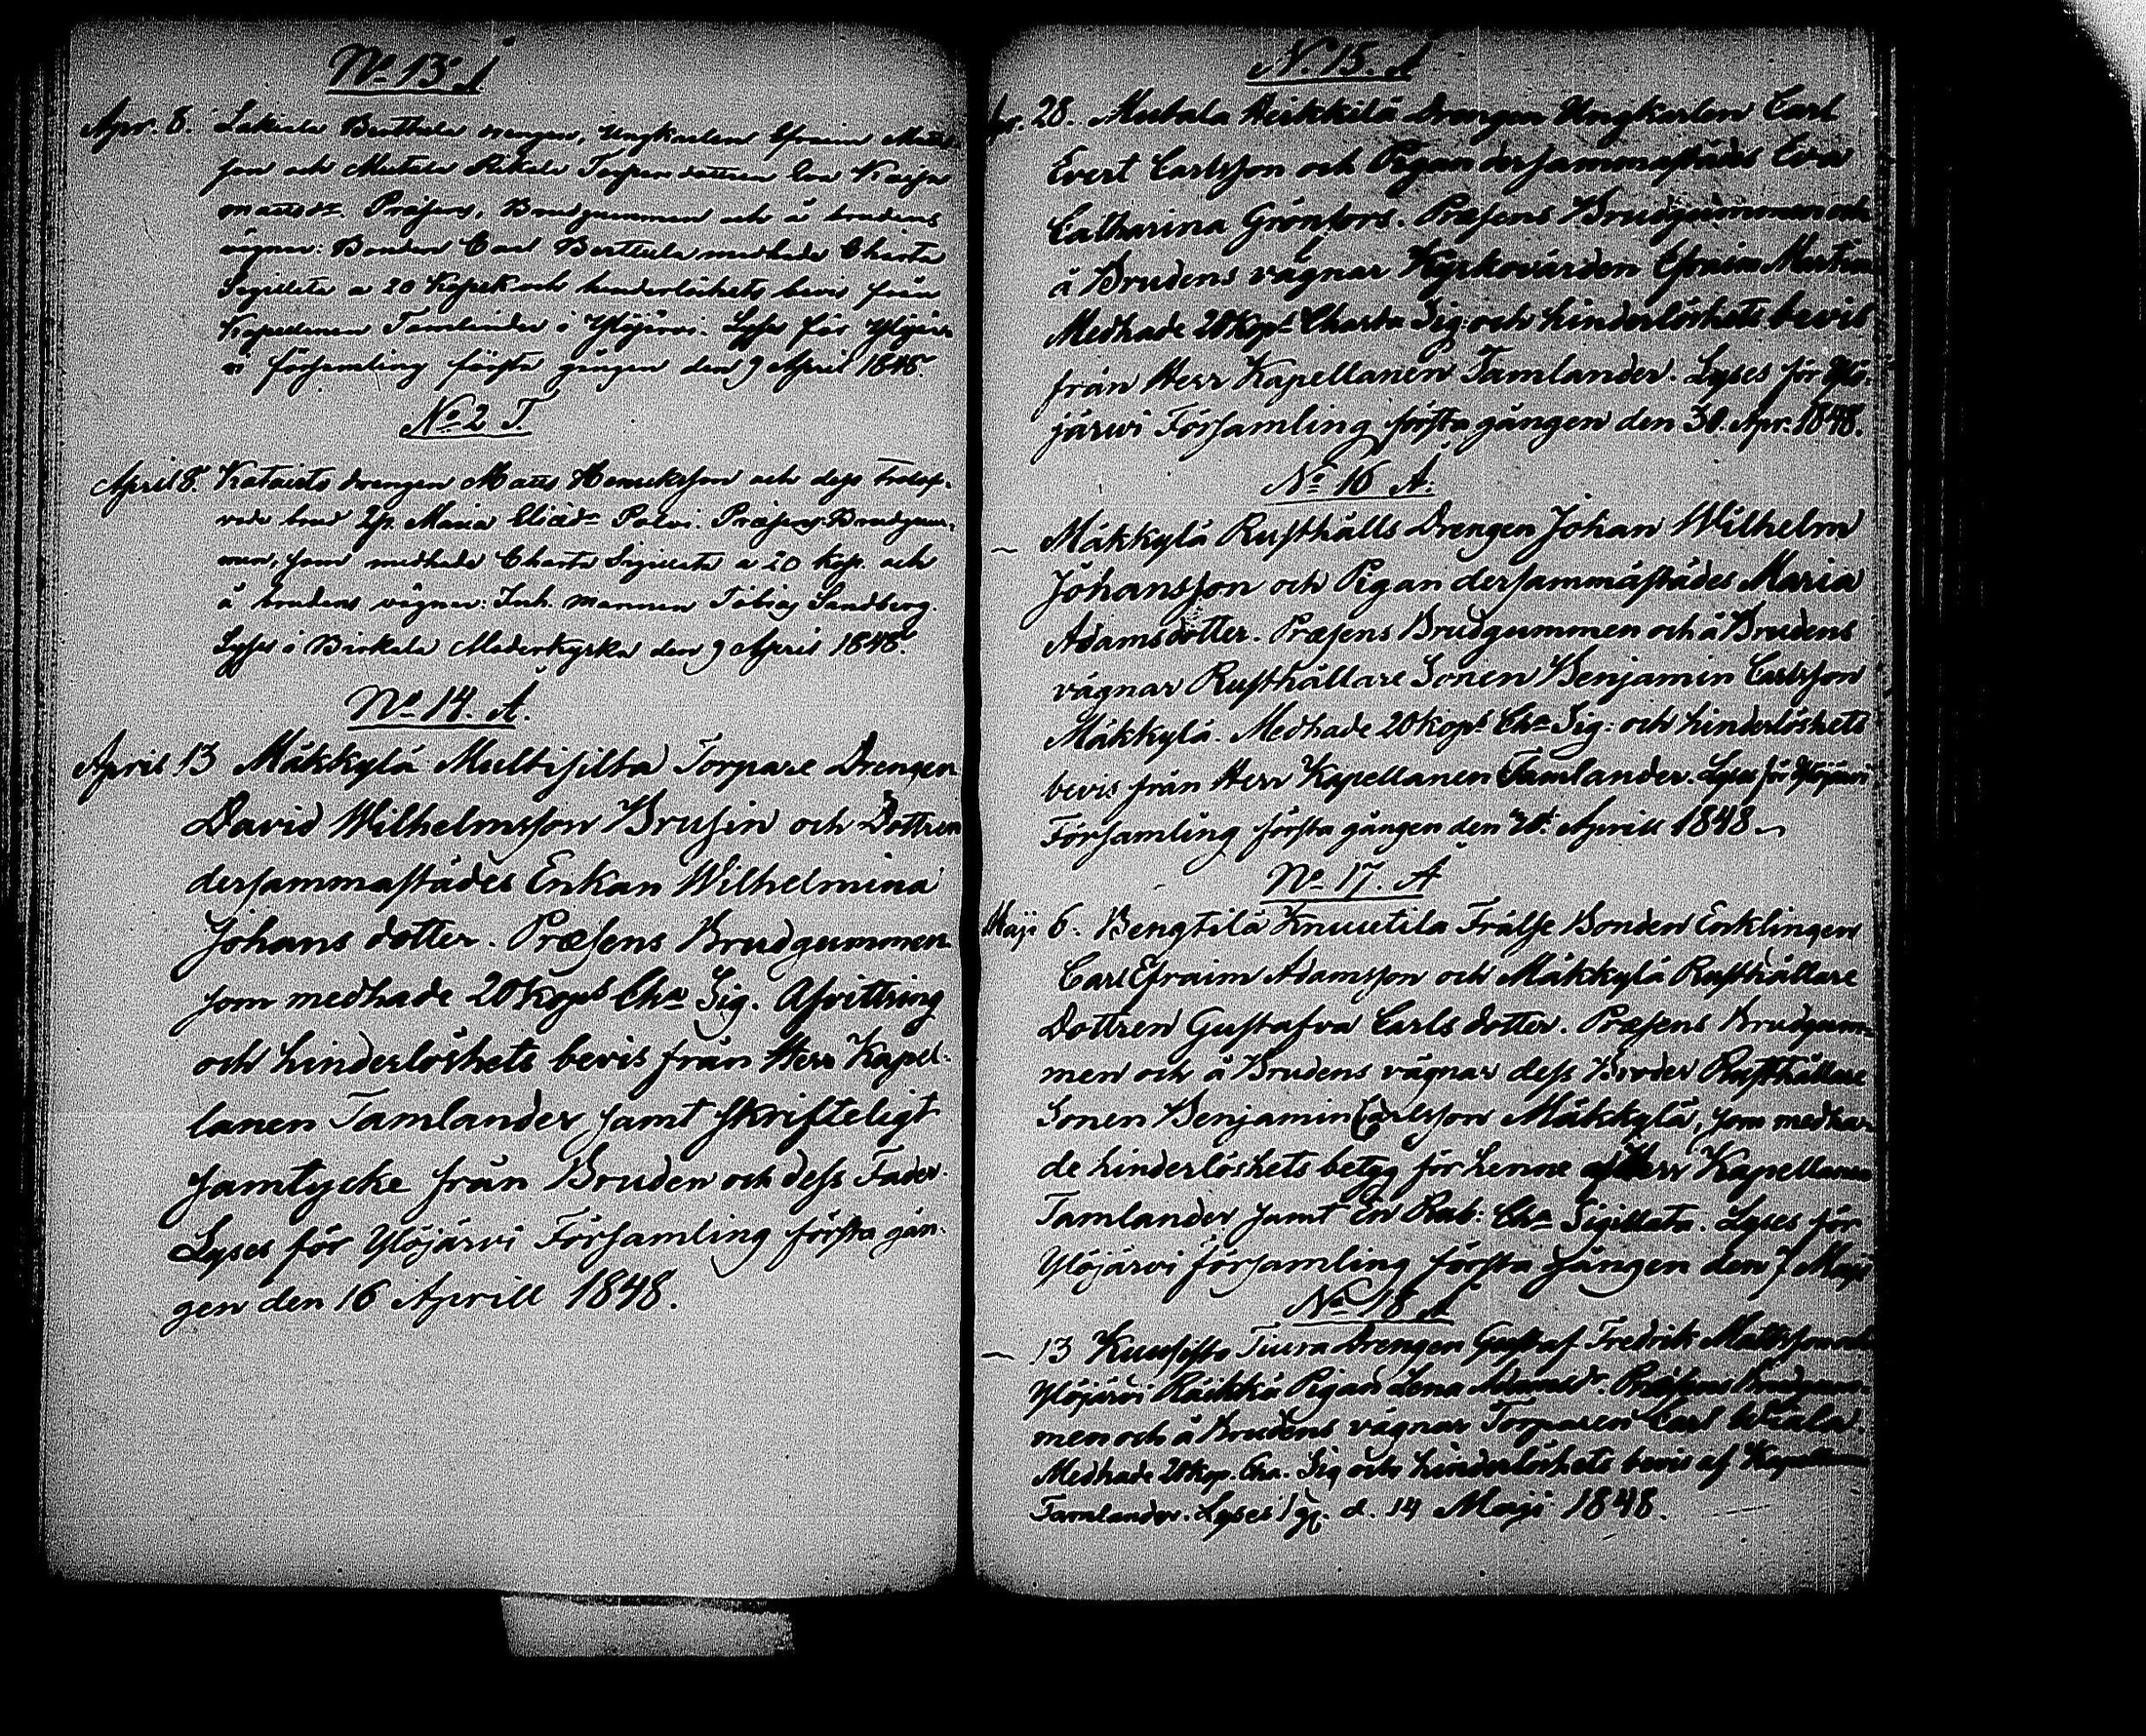 No 13 A
Apr. 8. Lakiala Berttula drengen, Ungkarlen Efraim Matts
son och Mutala Pukala Torpare dottren Eva Kaisa
Mattsdr. Præsens, Brudgummen och å brudens
vägnar: Bonden Carl Berttula medhade Charta
Sigillata a 20 Kopek och hinderlöshets bevis från
Kapellanen Tamlander i Ylöjärvi. Lyses för Ylöjär-
vi församling första gången den 9 April 1848.
No 2 T.
April 8. drengen Matts Henricksson och dess trolof-
vade brud Maria Eliædr Palvi. Præsens: Brudgum-
men, som medhade Charta Sigillata a 20 kop. och
å brudens vägnar: Inh. mannen Tobias Sandberg.
Lyses i Birkala Moderkyrka den 9 April 1848.
No 14. A.
April 13 Mäkkylä Multisilta Torpare Drengen
David Wilhelmsson Brusin och Dottren
dersammastädes Enkan Wilhelmina
Johans dotter. Præsens Brudgummen
som medhade 20 Kops Cha Sig. Afvittring
och hinderlöshets bevis från Herr Kapel-
lanen Tamlander samt skrifteligt
samtycke från Bruden och dess Fader.
Lyses för Ylöjärvi Församling första gån-
gen den 16 Aprill 1848.
N. 15. A
Apr. 28. Mutala Heikkilä Drengen Ungkarlen Carl
Evert Carlsson och Pigan dersammastädes Eva
Catharina Grönfors. Præsens Brudgummen och
å Brudens vägnar Kyrkovärden Efraim
Medhade 20 Kops Charta Sig: och hinderlöshets bevis
från Herr Kapellanen Tamlander. Lyses för Ylö-
järwi Församling första gången den 30. Apr. 1848.
No 16 A.
~ Mäkkylä Rusthålls Drengen Johan Wilhelm
Johansson och Pigan dersammastädes Maria
Adamsdotter. Præsens Brudgummen och å Brudens
vägnar Rusthållare Sonen Benjamin Carlsson
Mäkkylä. Medhade 20 kops Cha Sig: och hinderlöshets
bevis från Herr Kapellanen Tamlander. Lyses för Ylöjärvi
Församling första gången den Aprill 1848.
No 17. A
Maji 6. Bengtilä Knuutila Frälse Bonden Enklingen
Carl Efraim Adamsson och Mäkkylä Rusthållare
Dottren Gustafva Carls dotter. Præsens Brudgum-
men och å Brudens vägnar dess Broder Rusthållare
Sonen Benjamin Carlsson Mäkkylä, som medha-
de hinderlöshets betyg för henne af Herr Kapellanen
Tamlander samt En Rub: Cha Sigillata. Lyses för
Ylöjärvi församling första gången den 7 Maji
No 18 A
~ 13 Kuusisto Tiura Drengen Gustaf Fredrik Mattsson och
Ylöjärvi Räikkä Pigan Lena Præsens Brudgum-
men och å Brudens vägnar Torparen Carl
Medhade 20 kop. Cha. Sig och hinderlöshets bevis af Kapellanen
Tamlander. Lyses 1 g. d. 14 Maji 1848.